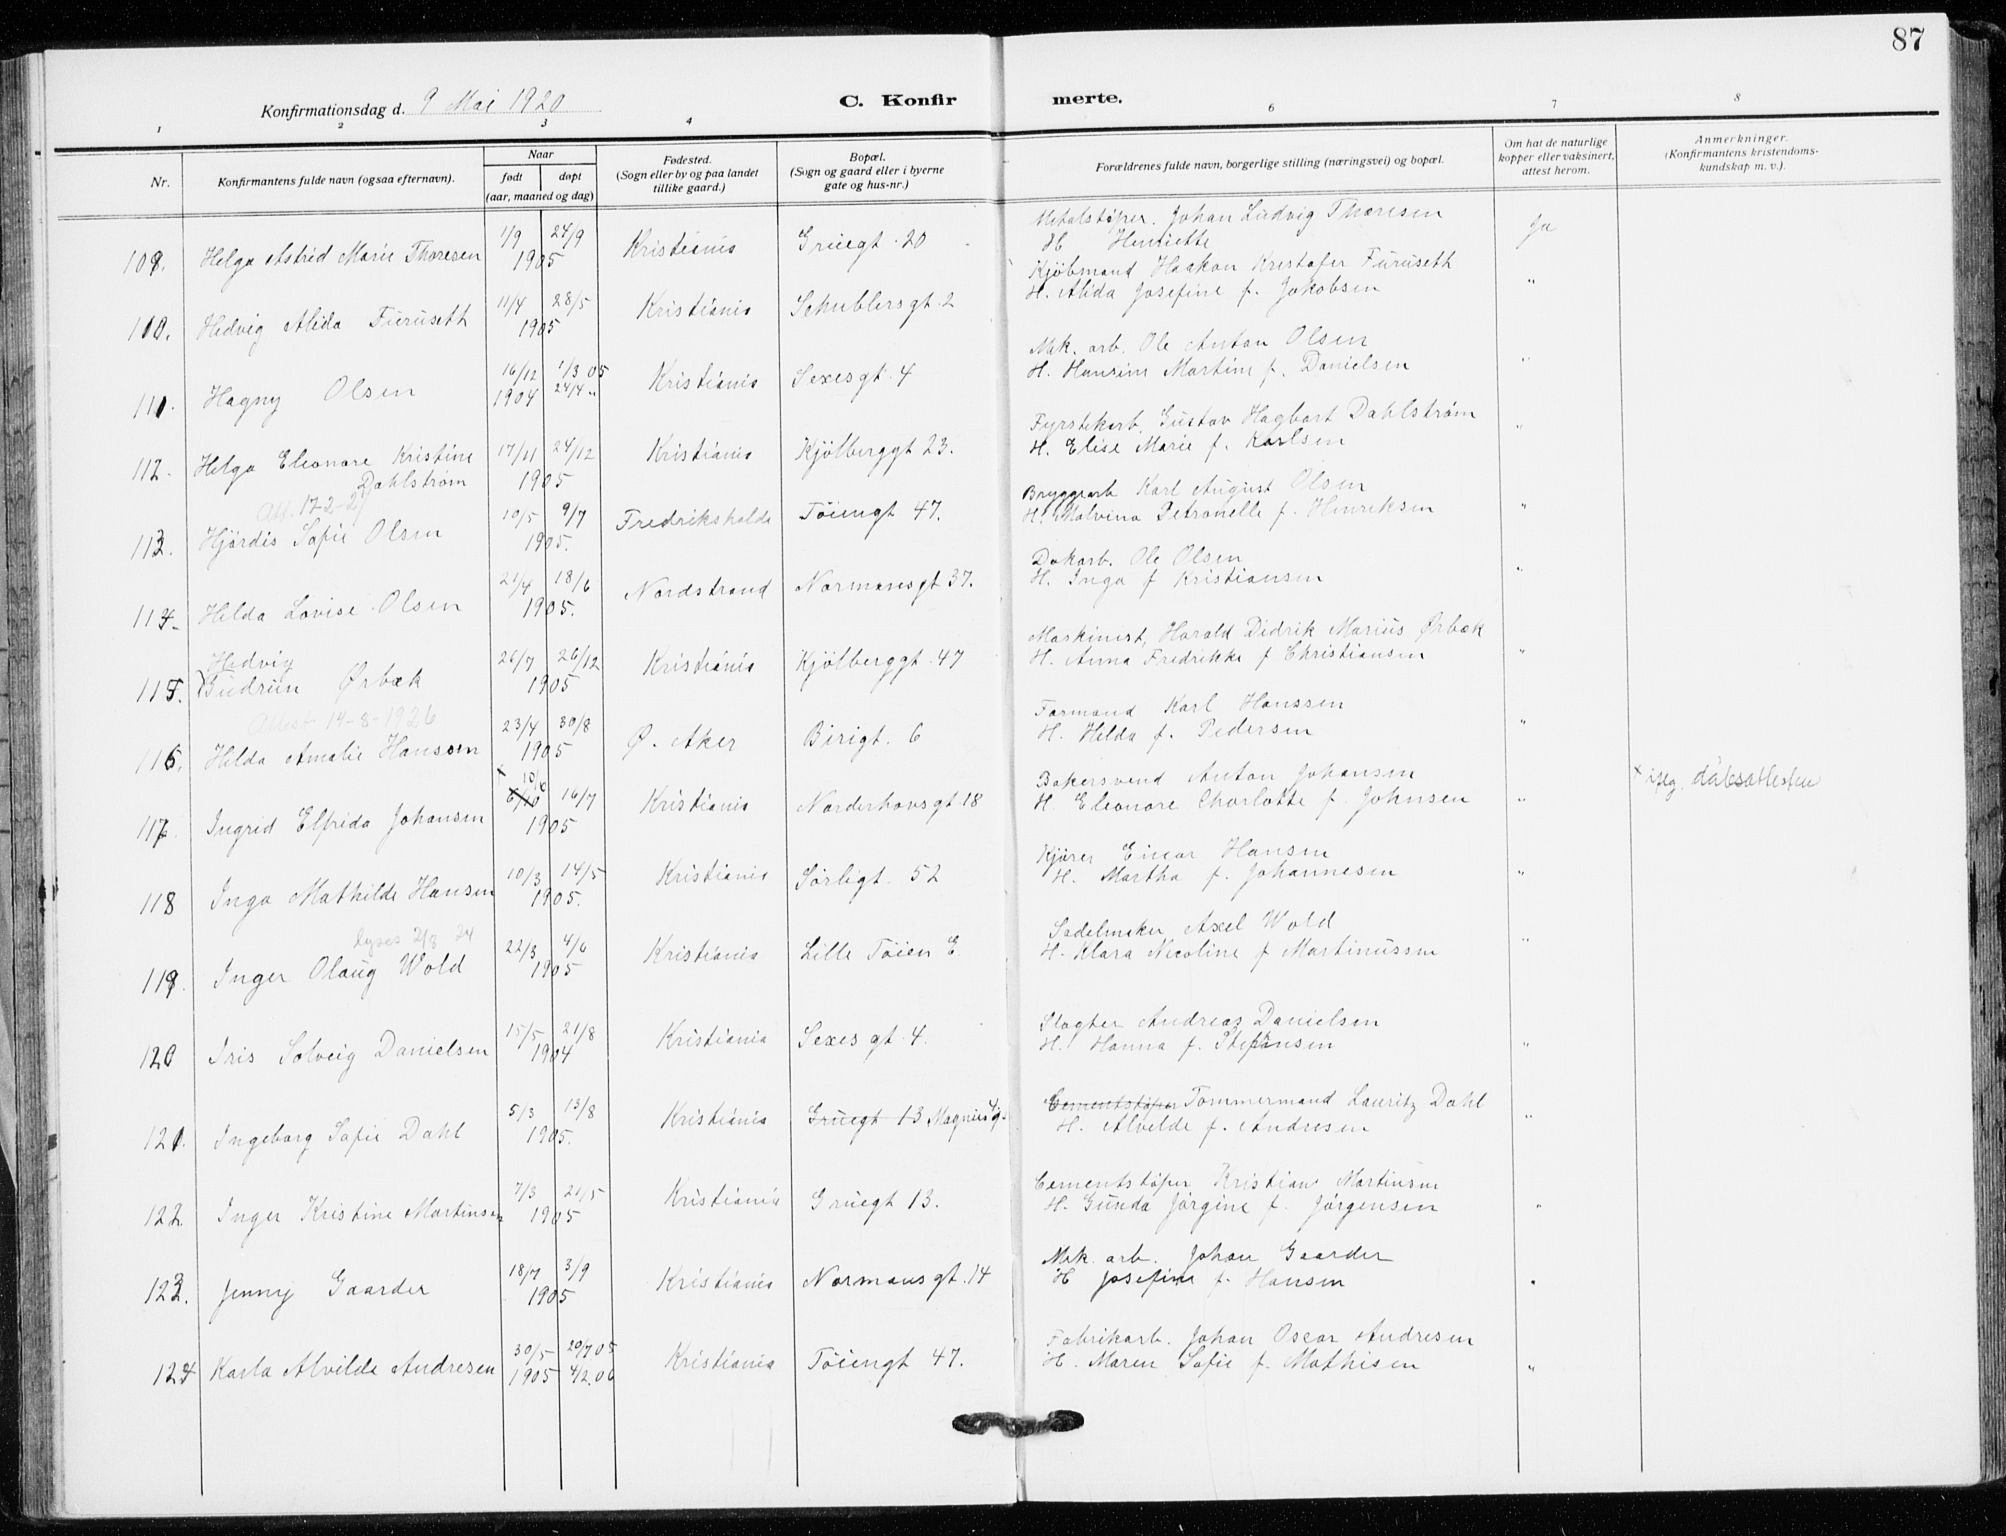 87
Konfirmationsdag d. 9 Mai 1920
C. Konfirmerte.
1 2 3 4 6 7 8
Nr.
Konfirmantens fulde navn (ogsaa efternavn).
Naar
født døpt
(aar, maaned og dag)
Fødested.
(Sogn eller by og paa landet
tillike gaard.)
Bopæl.
(Sogn og gaard eller i byerne
gate og hus-nr.)
Forældrenes fulde navn, borgerlige stilling (næringsvei) og bopæl.
Om hat de naturlige
kopper eller vaksinert,
attest herom.
Anmerkninger.
(Konfirmantens kristendoms-
kundskap m. v.)
Metalstøper. Johan Ludvig Thoresen
109. Helga Astrid Marie Thoresen 1/9 24/9 1905 Kristiania Gruegt. 20 H. Henriette Ja
Kjöbmand Haakon Kristofer Furuseth
110. Hedvig Alida Furuseth 11/4 28/5 1905 Kristiania Schublersgt. 2 H. Alida Josefine f. Jakobsen "
Mek. arb. Ole Anton Olsen
111. Hagny Olsen 16/12 1904 1/3 05 24/4 " Kristiania Sexesgt. 4 H. Hansine Martine f. Danielsen "
Fyrstikarb. Gustav Hagbart Dahlstrøm
112. Helga Eleonore Kristine Dahlstrøm 17/11 24/12 1905 Kristiania Kjölberggt 23. H. Elise Marie f. Karlsen "
Att. 17-2-21
Bryggearb Karl August Olsen
113. Hjørdis Sofie Olsen 10/5 9/7 1905. Fredrikshald Töiengt 47. H. Malvina Petronelle f. Henriksen "
Dokarb. Ole Olsen
114. Hilda Lovise Olsen 21/4 18/6 1905. Nordstrand Normansgt 37. H. Inga f Kristiansen "
Maskinist, Harald Didrik Marius Ørbæk
Hedvig
115. Gudrun Ørbæk 26/7 26/12 1905 Kristiania Kjölberggt. 47 H. Anna Fredrikke f Christiansen "
Attest 14-8-1926
Formand Karl Hanssen
116. Hilda Amalie Hanssen 23/4 30/8 1905 Ø. Aker Birigt. 6 H. Hilda f. Pedersen "
Bakersvend Anton Johansen
117. Ingrid Elfrida Johansen x 10/6 6/10 16/7 1905 Kristiania Norderhovsgt 18 H. Eleonore Charlotte f. Johnsen " x iflg. dåbsattesten
Kjører Einar Hansen
118 Inga Mathilde Hansen 10/3 14/5 1905. Kristiania Sørligt. 52 H. Martha f. Johannesen "
lyses 2/3 24
Sadelmaker Axel Wold
119. Inger Olaug Wold 22/3 4/6 1905 Kristiania Lille Töien E H. Klara Nicoline f Martinussen "
Slagter Andreas Danielsen
120 Iris Solveig Danielsen 15/5 21/8 1904 Kristiania Sexes gt. 4. H. Hanna f. Stefansen "
Cementstøper Tømmermand Lauritz Dahl
121. Ingeborg Sofie Dahl 5/3 13/8 1905. Kristiania Gruegt 13 Magnusg. H. Alvilde f. Andresen "
Cementstøper Kristian Martinsen
122. Inger Kristine Martinsen 7/3 21/5 1905 Kristiania Gruegt 13. H. Gunda Jørgine f. Jørgensen "
Mek. arb. Johan Gaarder
123. Jenny Gaarder 18/7 3/9 1905 Kristiania Normansgt. 14 H Josefine f. Hansen "
Fabrikarb. Johan Oscar Andresen
124 Karla Alvilda Andresen 30/5 1905 20/7 05 4/2.06 Kristiania Töiengt 47. H. Maren Sofie f. Mathisen "